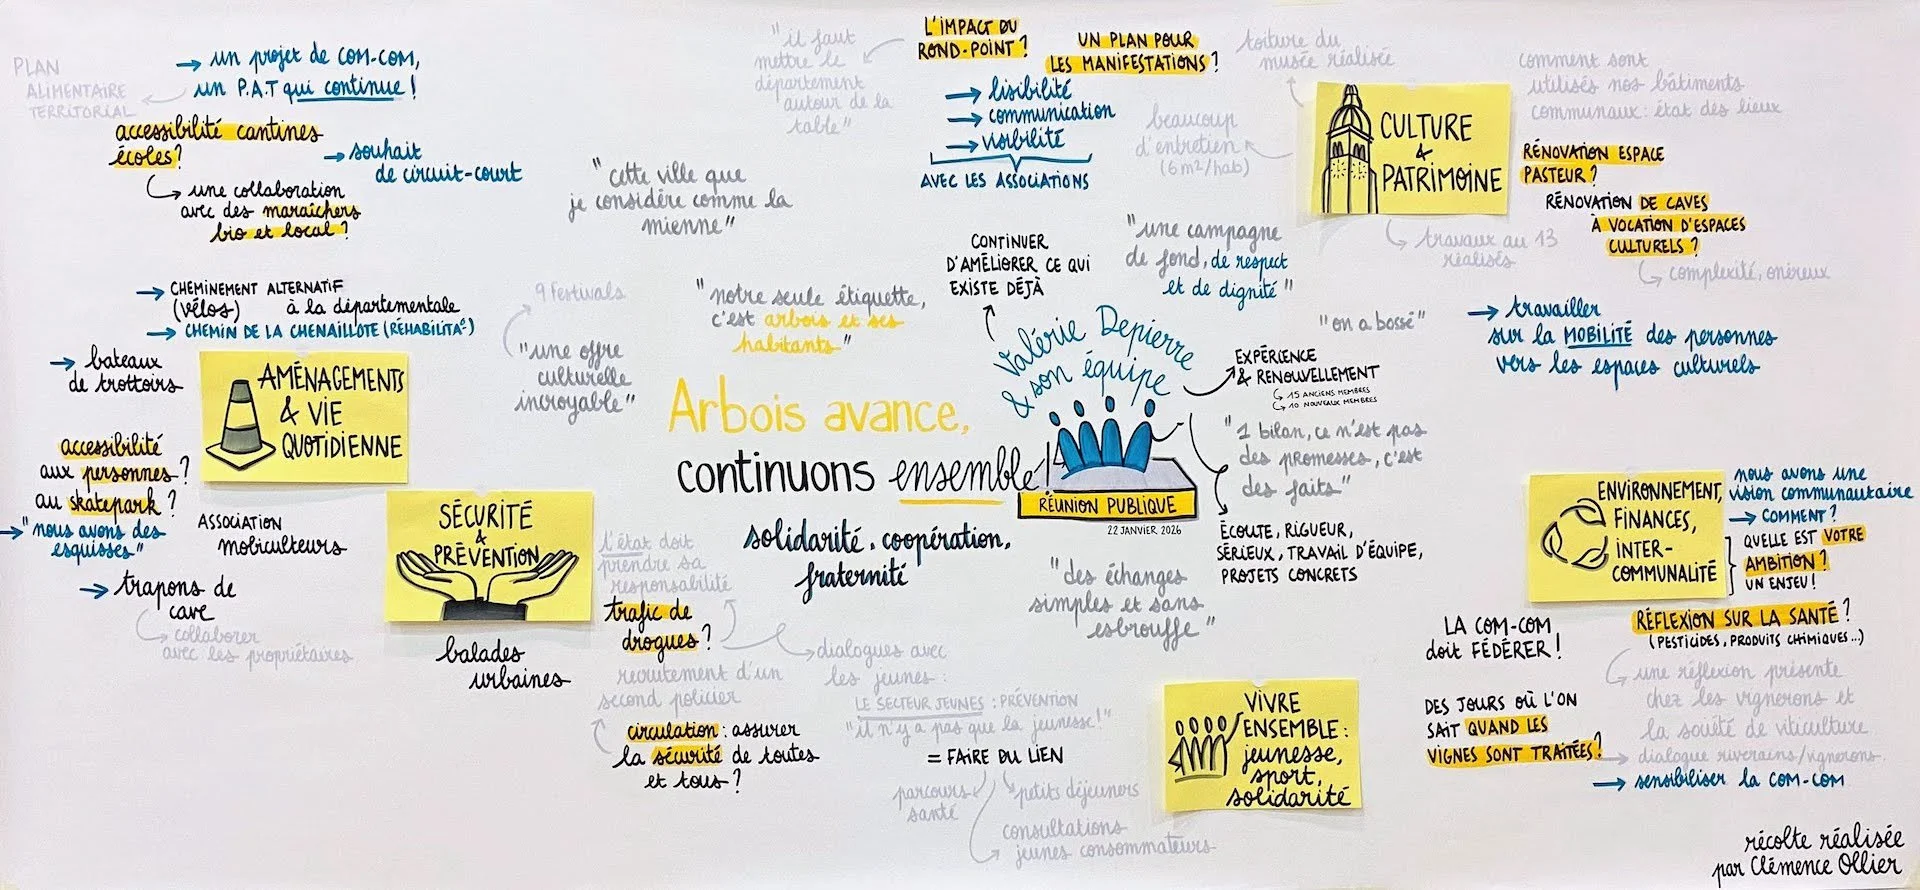 PLAN
ALIMENTAIRE
TERRITORIAL
→ un projet de COM-COM,
un P.A.T qui continue !
accessibilité cantines
écoles ?
→ souhait
de circuit-court
une collaboration
avec des maraîchers
bio et local ?
"il faut
mettre le
département
autour de la
table"
L'IMPACT DU
ROND-POINT ?
UN PLAN POUR
LES MANIFESTATIONS ?
→ lisibilité
→ communication
→ visibilité
AVEC LES ASSOCIATIONS
"cette ville que
je considère comme la
mienne"
toiture du
musée réalisée
beaucoup
d'entretien
(6m²/hab)
CULTURE
&
PATRIMOINE
travaux au 13
réalisés
comment sont
utilisés nos bâtiments
communaux : état des lieux
RÉNOVATION ESPACE
PASTEUR ?
RÉNOVATION DE CAVES
À VOCATION D'ESPACES
CULTURELS ?
complexité, onéreux
→ travailler
sur la MOBILITÉ des personnes
vers les espaces culturels
→ CHEMINEMENT ALTERNATIF
(vélos) à la départementale
→ CHEMIN DE LA CHENAILLOTE (RÉHABILITÉ)
→ bateaux
de trottoirs
AMÉNAGEMENTS
& VIE
QUOTIDIENNE
accessibilité
aux personnes ?
au skatepark ?
→ "nous avons des
esquisses"
ASSOCIATION
mobiculteurs
→ trapons de
cave
collaborer
avec les propriétaires
9 festivals
"une offre
culturelle
incroyable"
"notre seule étiquette,
c'est arbois et ses
habitants"
Arbois avance,
continuons ensemble !
solidarité, coopération,
fraternité
CONTINUER
D'AMÉLIORER CE QUI
EXISTE DÉJÀ
"une campagne
de fond, de respect
et de dignité"
"on a bossé"
Valérie Depierre
& son équipe
RÉUNION PUBLIQUE
22 JANVIER 2026
EXPÉRIENCE
& RENOUVELLEMENT
15 ANCIENS MEMBRES
10 NOUVEAUX MEMBRES
"1 bilan, ce n'est pas
des promesses, c'est
des faits"
ÉCOUTE, RIGUEUR,
SÉRIEUX, TRAVAIL D'ÉQUIPE,
PROJETS CONCRETS
"des échanges
simples et sans
esbrouffe"
SÉCURITÉ
&
PRÉVENTION
balades
urbaines
l'état doit
prendre sa
responsabilité
trafic de
drogues ?
recrutement d'un
second policier
circulation : assurer
la sécurité de toutes
et tous ?
dialogues avec
les jeunes :
LE SECTEUR JEUNES : PRÉVENTION
"il n'y a pas que la jeunesse !"
= FAIRE DU LIEN
parcours
santé
petits déjeuners
consultations
jeunes consommateurs
VIVRE
ENSEMBLE :
jeunesse,
sport,
solidarité
ENVIRONNEMENT,
FINANCES,
INTER-
COMMUNALITÉ
nous avons une
vision communautaire
→ COMMENT ?
QUELLE EST VOTRE
AMBITION ?
UN ENJEU !
LA COM-COM
doit FÉDÉRER !
RÉFLEXION SUR LA SANTÉ ?
(PESTICIDES, PRODUITS CHIMIQUES...)
une réflexion présente
chez les vignerons et
la société de viticulture
DES JOURS OÙ L'ON
SAIT QUAND LES
VIGNES SONT TRAITÉES ?
→ dialogue riverains/vignerons.
→ sensibiliser la COM-COM
récolte réalisée
par Clémence Ollier